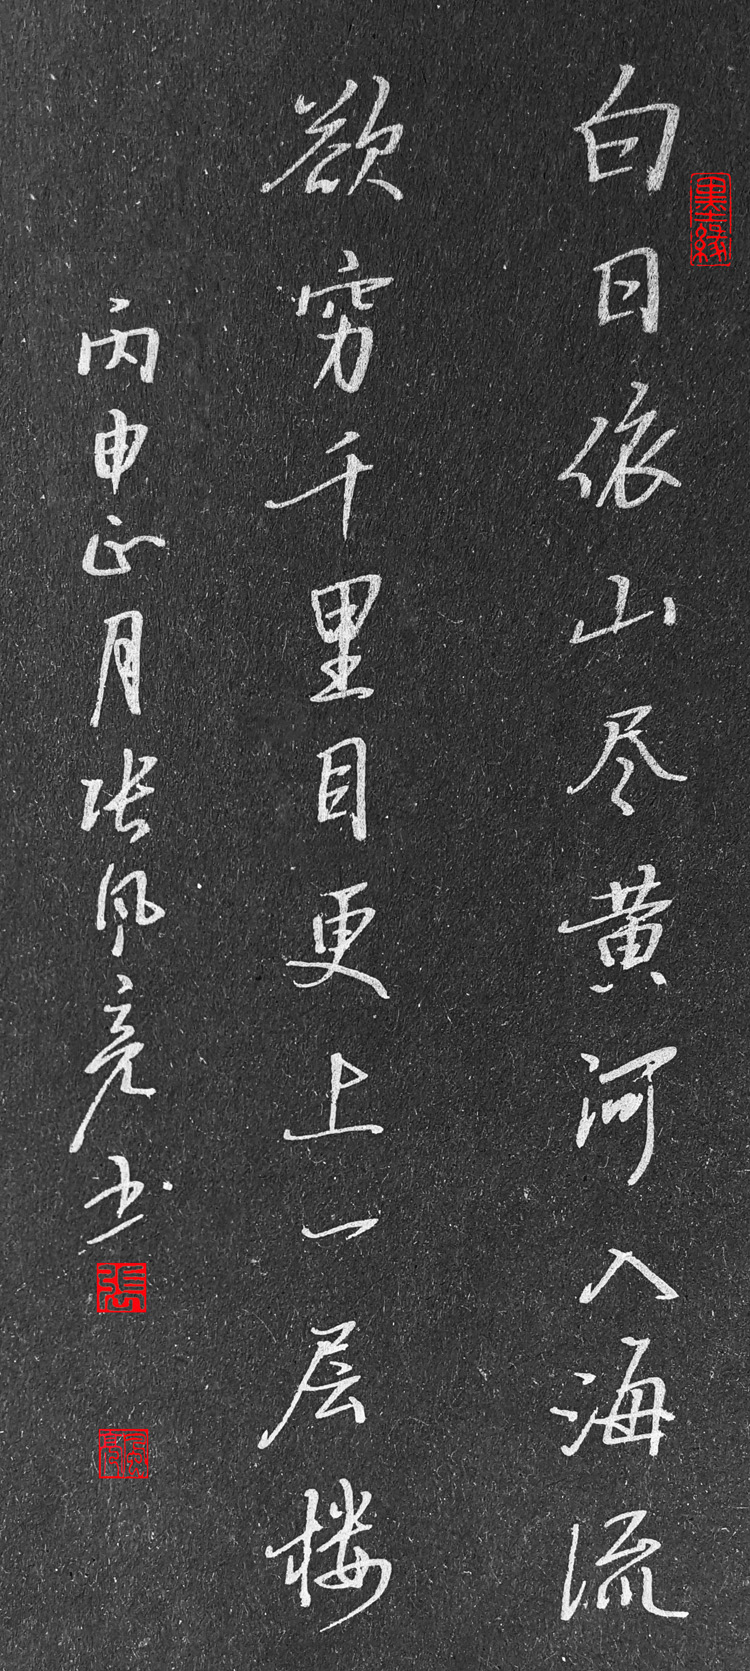 白日依山尽黄河入海流
欲穷千里目更上一层楼
丙申正月张风亮书
墨缘
張